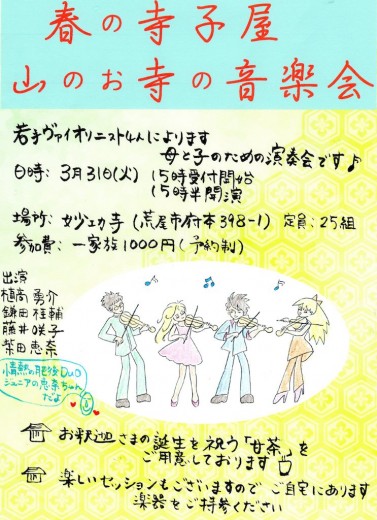 春の寺子屋
山のお寺の音楽会
若手ヴァイオリニスト4人によります
母と子のための演奏会です♪
日時: 3月31日(火) 15時受付開始
15時半開演
場所: 妙ェカ寺 (荒尾市府本398-1) 定員:25組
参加費: 一家族1000円(予約制)
出演
植高勇介
鎌田桂輔
藤井咲子
柴田恵奈
情熱の肥後DUO
ジュニアの恵奈ちゃん
だよ
お釈迦さまの誕生を祝う「甘茶」を
ご用意しております
楽しいセッションもございますので ご自宅にあります
楽器をご持参ください